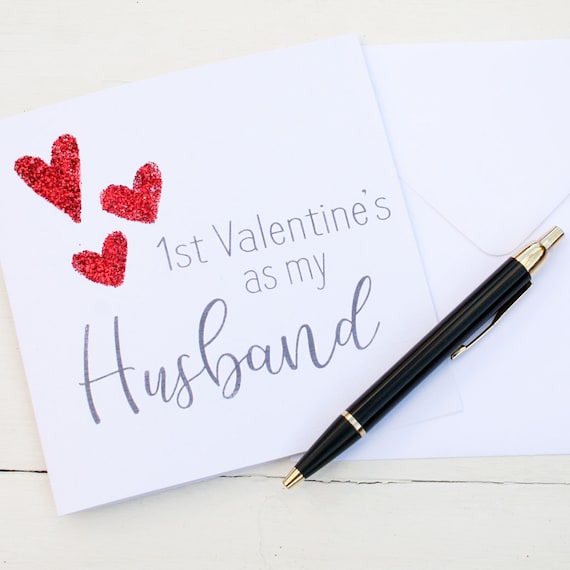 1st Valentine's
as my
Husband